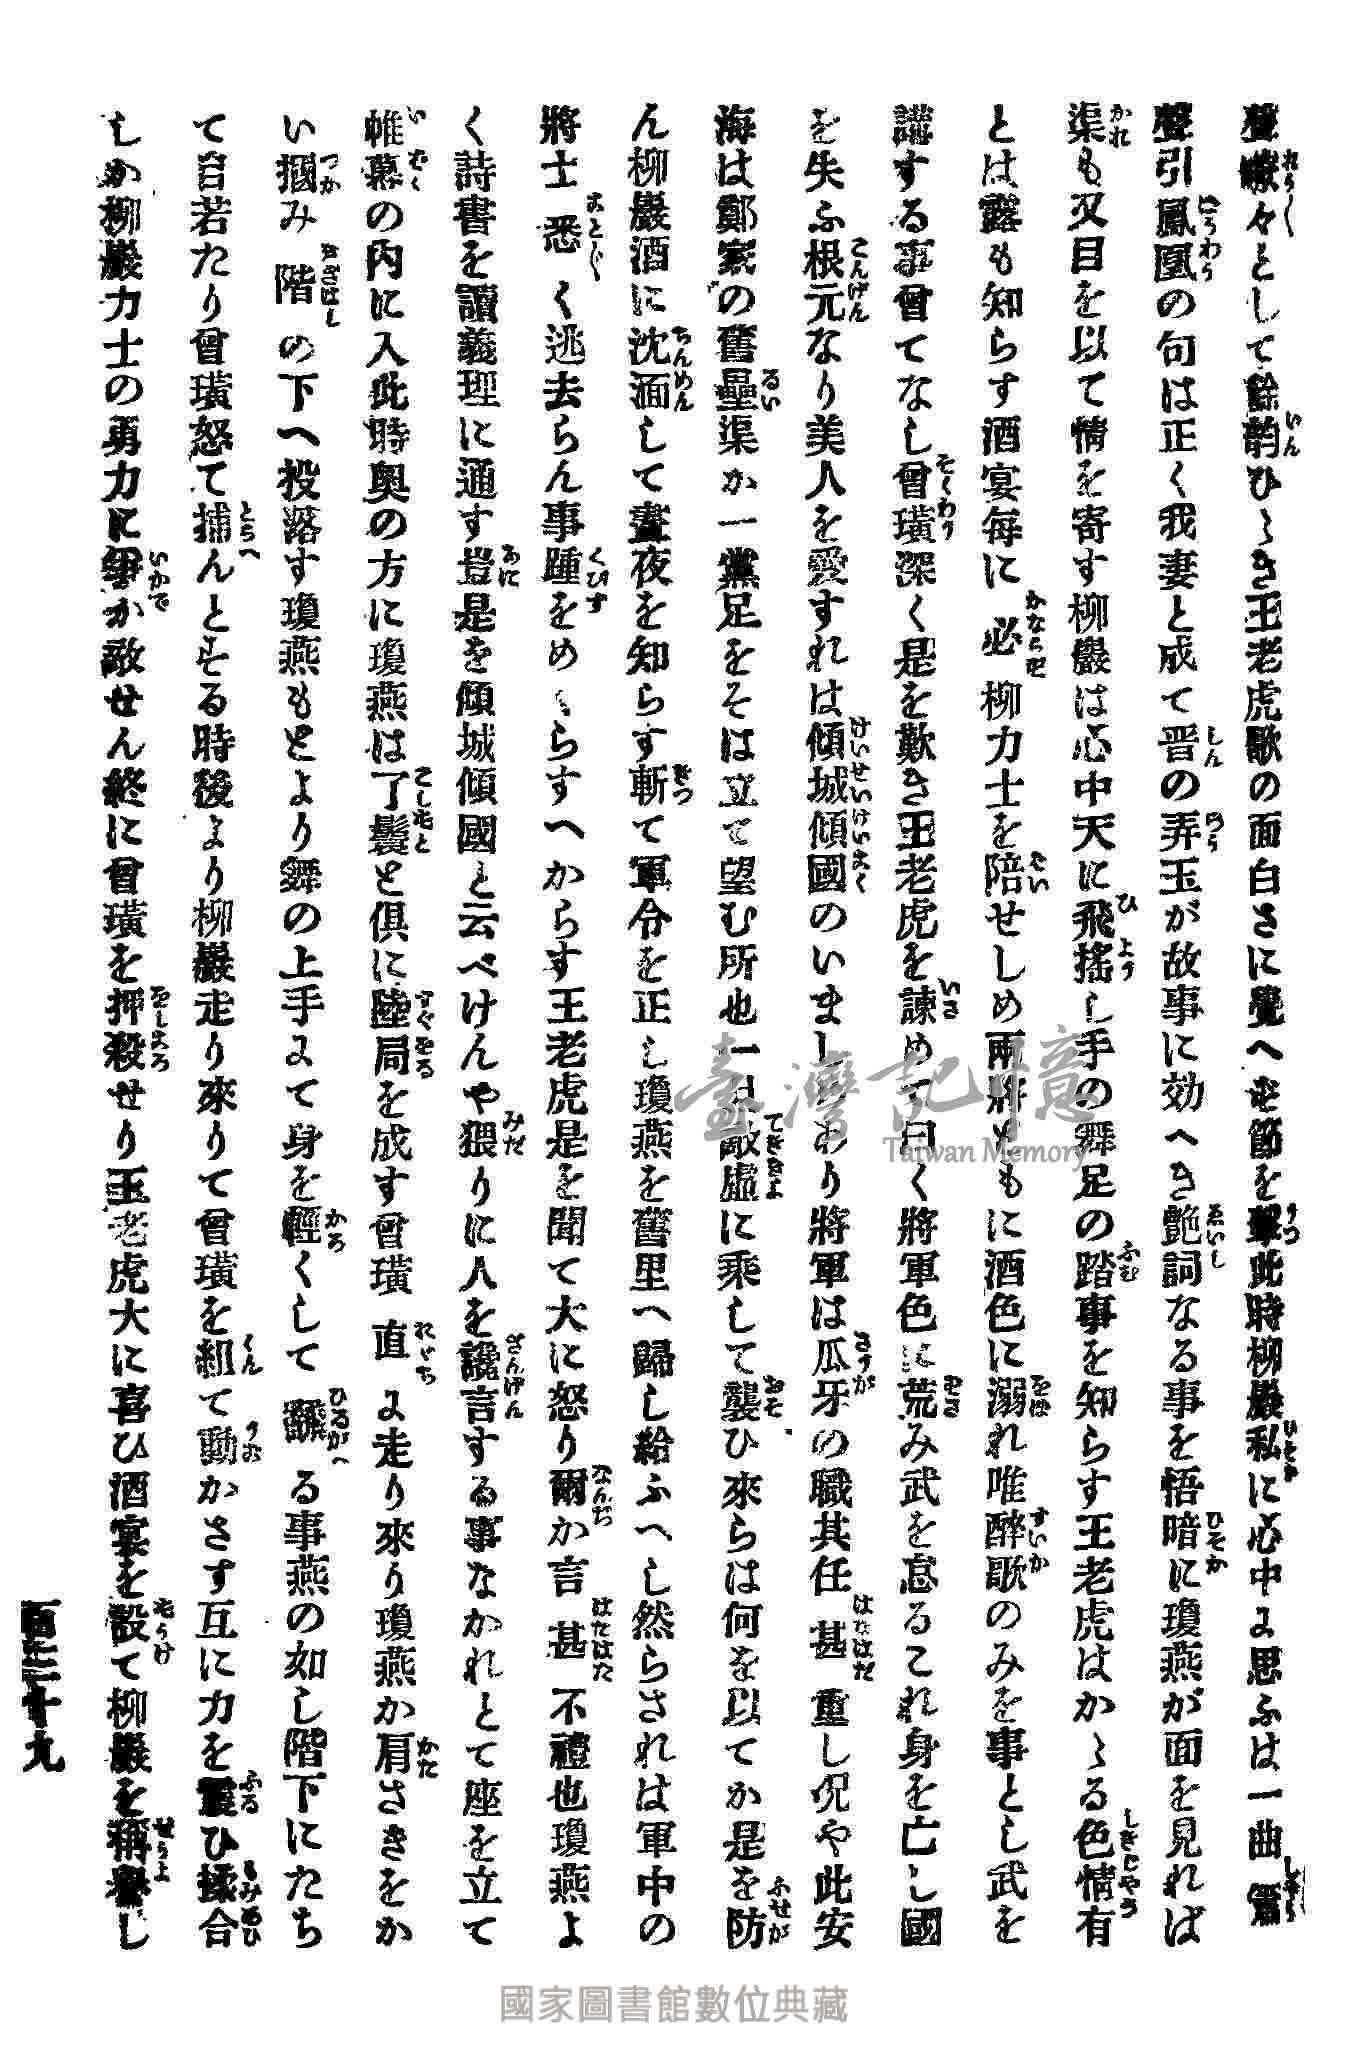 聲嚠々として餘韵ひゝき王老虎歌の面白さに覺へす節を擊此時柳嚴私に心中に思ふは一曲簫
聲引鳳凰の句は正く我妻と成て晋の弄玉が故事に効へき艶詞なる事を悟暗に瓊燕が面を見れば
渠も又目を以て情を寄す柳嚴は心中天に飛揺し手の舞足の踏事を知らす王老虎はかゝる色情有
とは露も知らす酒宴毎に必柳力士を陪せしめ兩將ともに酒色に溺れ唯醉歌のみを事とし武を
講する事曾てなし曾璜深く是を歎き王老虎を諫めて曰く將軍色に荒み武を怠るこれ身を亡し國
を失ふ根元なり美人を愛すれは傾城傾國のいましめあり將軍は瓜牙の職其任甚重し况や此安
海は鄭家の舊壘渠か一黨足をそは立て望む所也一旦敵虛に乘して襲ひ來らは何を以てか是を防
ん柳嚴酒に沈湎して晝夜を知らす斬て軍令を正し瓊燕を舊里へ歸し給ふへし然らされは軍中の
將士悉く逃去らん事踵をめくらすへからす王老虎是を聞て大に怒り爾か言甚不禮也瓊燕よ
く詩書を讀義理に通す豈是を傾城傾國と云べけんや猥りに人を讒言する事なかれとて座を立て
帷幕の內に入此時奥の方に瓊燕は了鬟と俱に陸局を成す曾璜直に走り來り瓊燕か肩さきをか
い摑み階の下へ投落す瓊燕もとより舞の上手にて身を輕くして飜る事燕の如し階下にたち
て自若たり曾璜怒て捕んとする時後より柳嚴走り來りて曾璜を組て動かさす互に力を震ひ揉合
しか柳嚴力士の勇力に爭か敵せん終に曾璜を押殺せり王老虎大に喜ひ酒宴を設て柳嚴を稱譽し
百三十九
臺灣記憶
Taiwan Memory
國家圖書館數位典藏